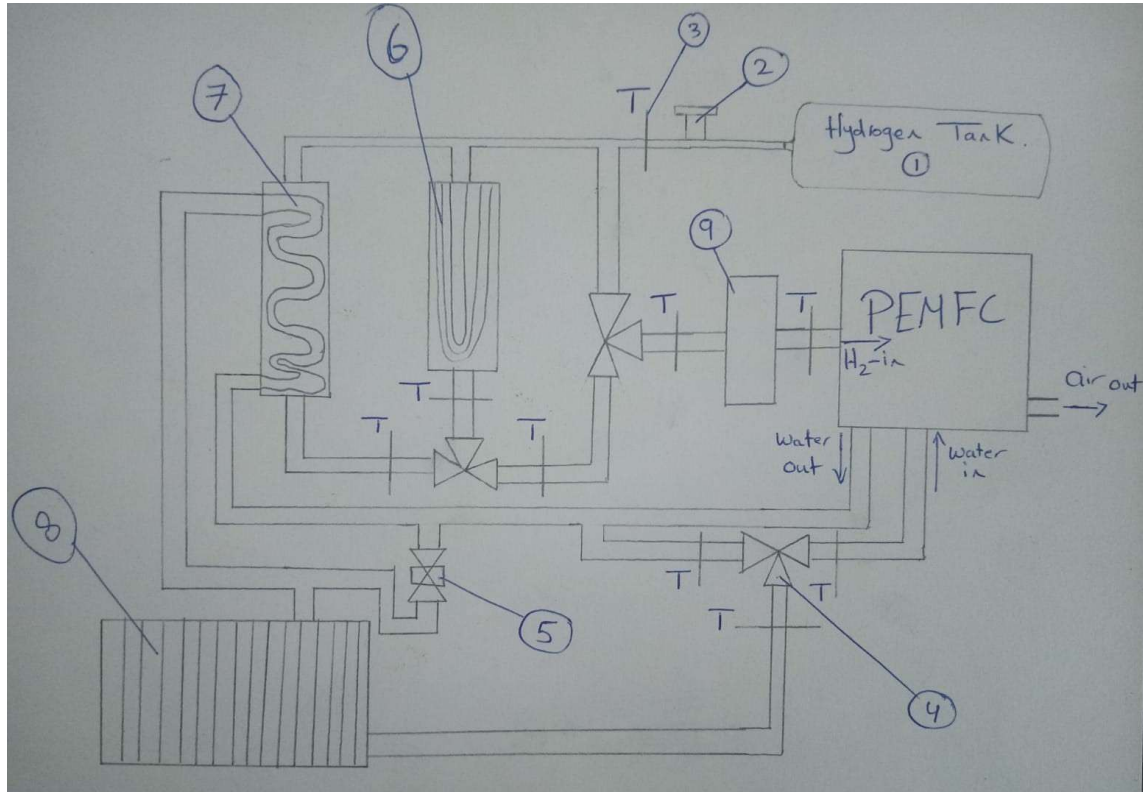 6
3
2
7
T
Hydrogen Tank.
1
9
T
T
PEMFC
H₂-in
air out
T
T
T
water
out
water
in
8
T
T
5
T
4